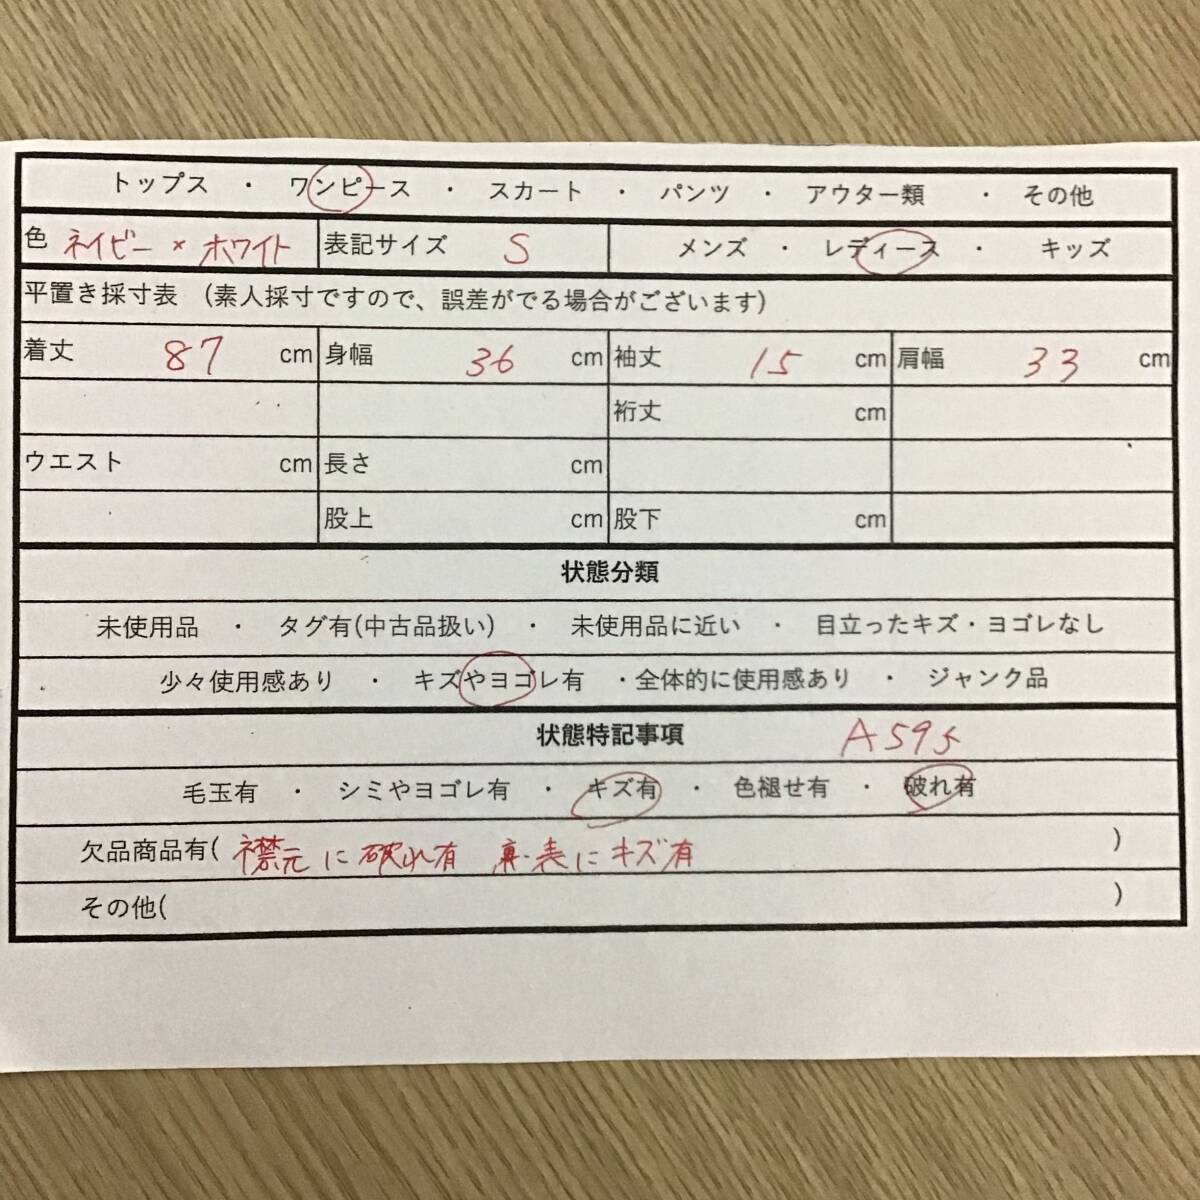 トップス ・ ワンピース ・ スカート ・ パンツ ・ アウター類 ・ その他
色 ネイビー × ホワイト 表記サイズ S メンズ ・ レディース ・ キッズ
平置き採寸表 (素人採寸ですので、誤差がでる場合がございます)
着丈 87 cm 身幅 36 cm 袖丈 15 cm 肩幅 33 cm
裄丈 cm
ウエスト cm 長さ cm
股上 cm 股下 cm
状態分類
未使用品 ・ タグ有(中古品扱い) ・ 未使用品に近い ・ 目立ったキズ・ヨゴレなし
少々使用感あり ・ キズやヨゴレ有 ・全体的に使用感あり ・ ジャンク品
状態特記事項 A595
毛玉有 ・ シミやヨゴレ有 ・ キズ有 ・ 色褪せ有 ・ 破れ有
欠品商品有( 襟元に破れ有 ・表にキズ有 )
その他( )